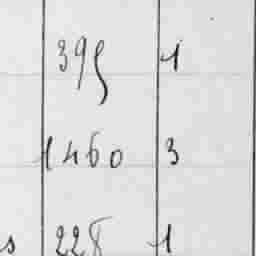 395 1
1460 3
s 228 1